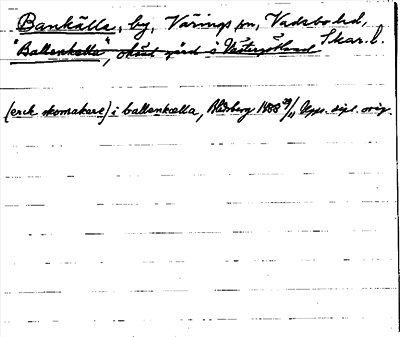 Bankälla, by, Värings sn, Vadsbo hd, Skar. l.
"Ballenkætla", okänd gård i Västergötland
(erik skomakare) i ballenkætla, Rådberg 1488 29/11 Upps. dipl. orig.